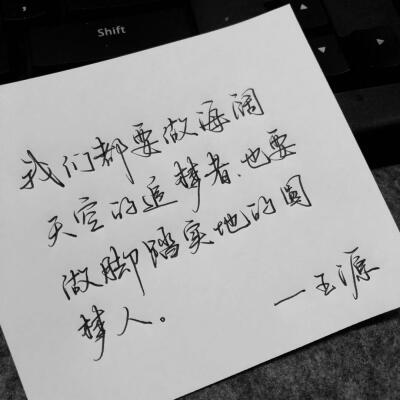 Shift
我们都要做海阔
天空的追梦者、也要
做脚踏实地的圆
梦人。
—王源